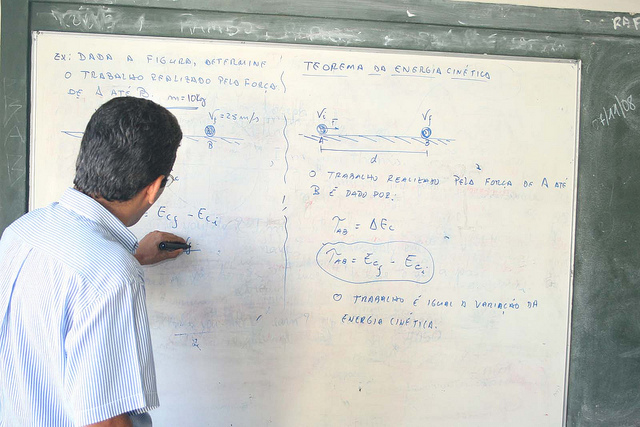 EX: DADA A FIGURA, DETERMINE
O TRABALHO REALIZADO PELA FORÇA
DE A ATÉ B. m=10Kg
Vf = 25 m/s
B
Ecf - Eci
TEOREMA DA ENERGIA CINÉTICA
Vi
F
Vf
A
B
d
O TRABALHO REALIZADO PELA FORÇA DE A ATÉ
B É DADO POR:
τAB = ΔEc
τAB = Ecf - Eci
O TRABALHO É IGUAL A VARIAÇÃO DA
ENERGIA CINÉTICA.
/11/08